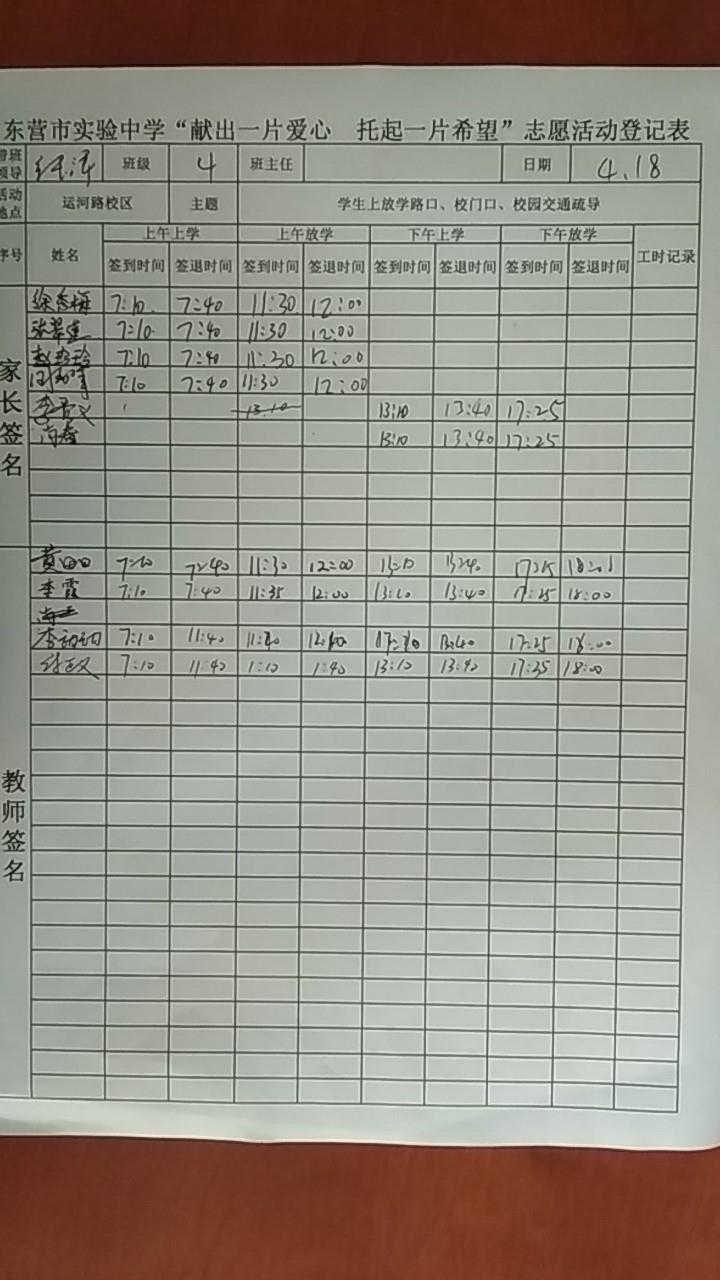 东营市实验中学“献出一片爱心 托起一片希望”志愿活动登记表
带班领导 班级 4 班主任 日期 4.18
活动地点 运河路校区 主题 学生上放学路口、校门口、校园交通疏导
序号 姓名 上午上学 上午放学 下午上学 下午放学 工时记录
签到时间 签退时间 签到时间 签退时间 签到时间 签退时间 签到时间 签退时间
家长签名
7:10 7:40 11:30 12:00
7:10 7:40 11:30 12:00
7:10 7:40 11:30 12:00
7:10 7:40 11:30 12:00
13:10 13:10 13:40 17:25
13:10 13:40 17:25
教师签名
7:10 7:40 11:30 12:00 13:10 13:40 17:25
李霞 7:10 7:40 11:35 12:00 13:10 13:40 17:25 18:00
7:10 11:40 13:40 17:25 18:00
7:10 11:40 1:10 1:40 13:10 13:40 17:25 18:00